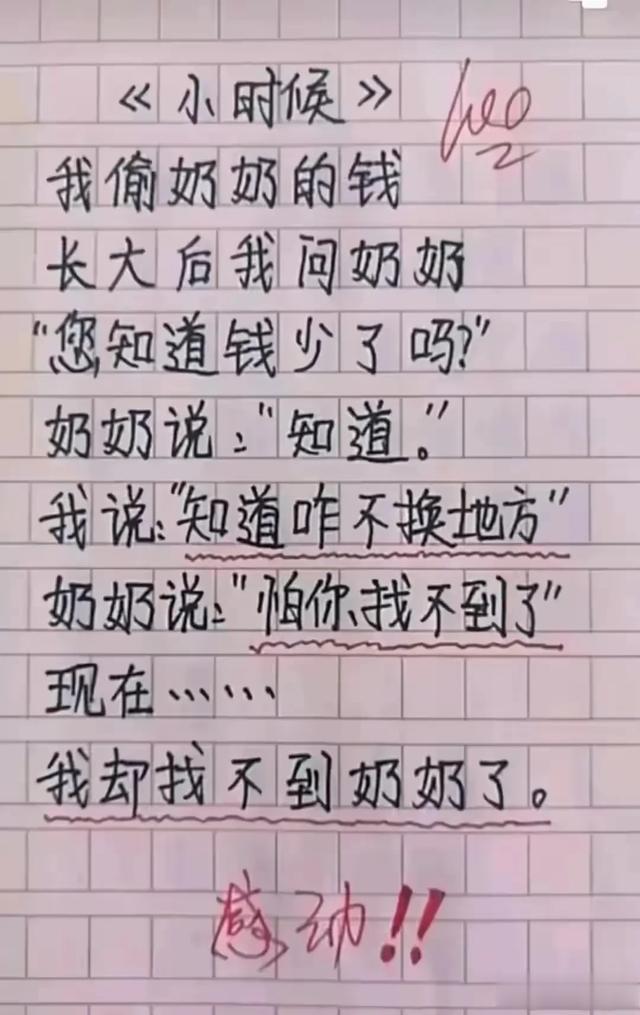 《小时候》
100
我偷奶奶的钱
长大后我问奶奶
“您知道钱少了吗?”
奶奶说:“知道。”
我说:“知道咋不换地方”
奶奶说:“怕你找不到了”
现在……
我却找不到奶奶了。
感动!!